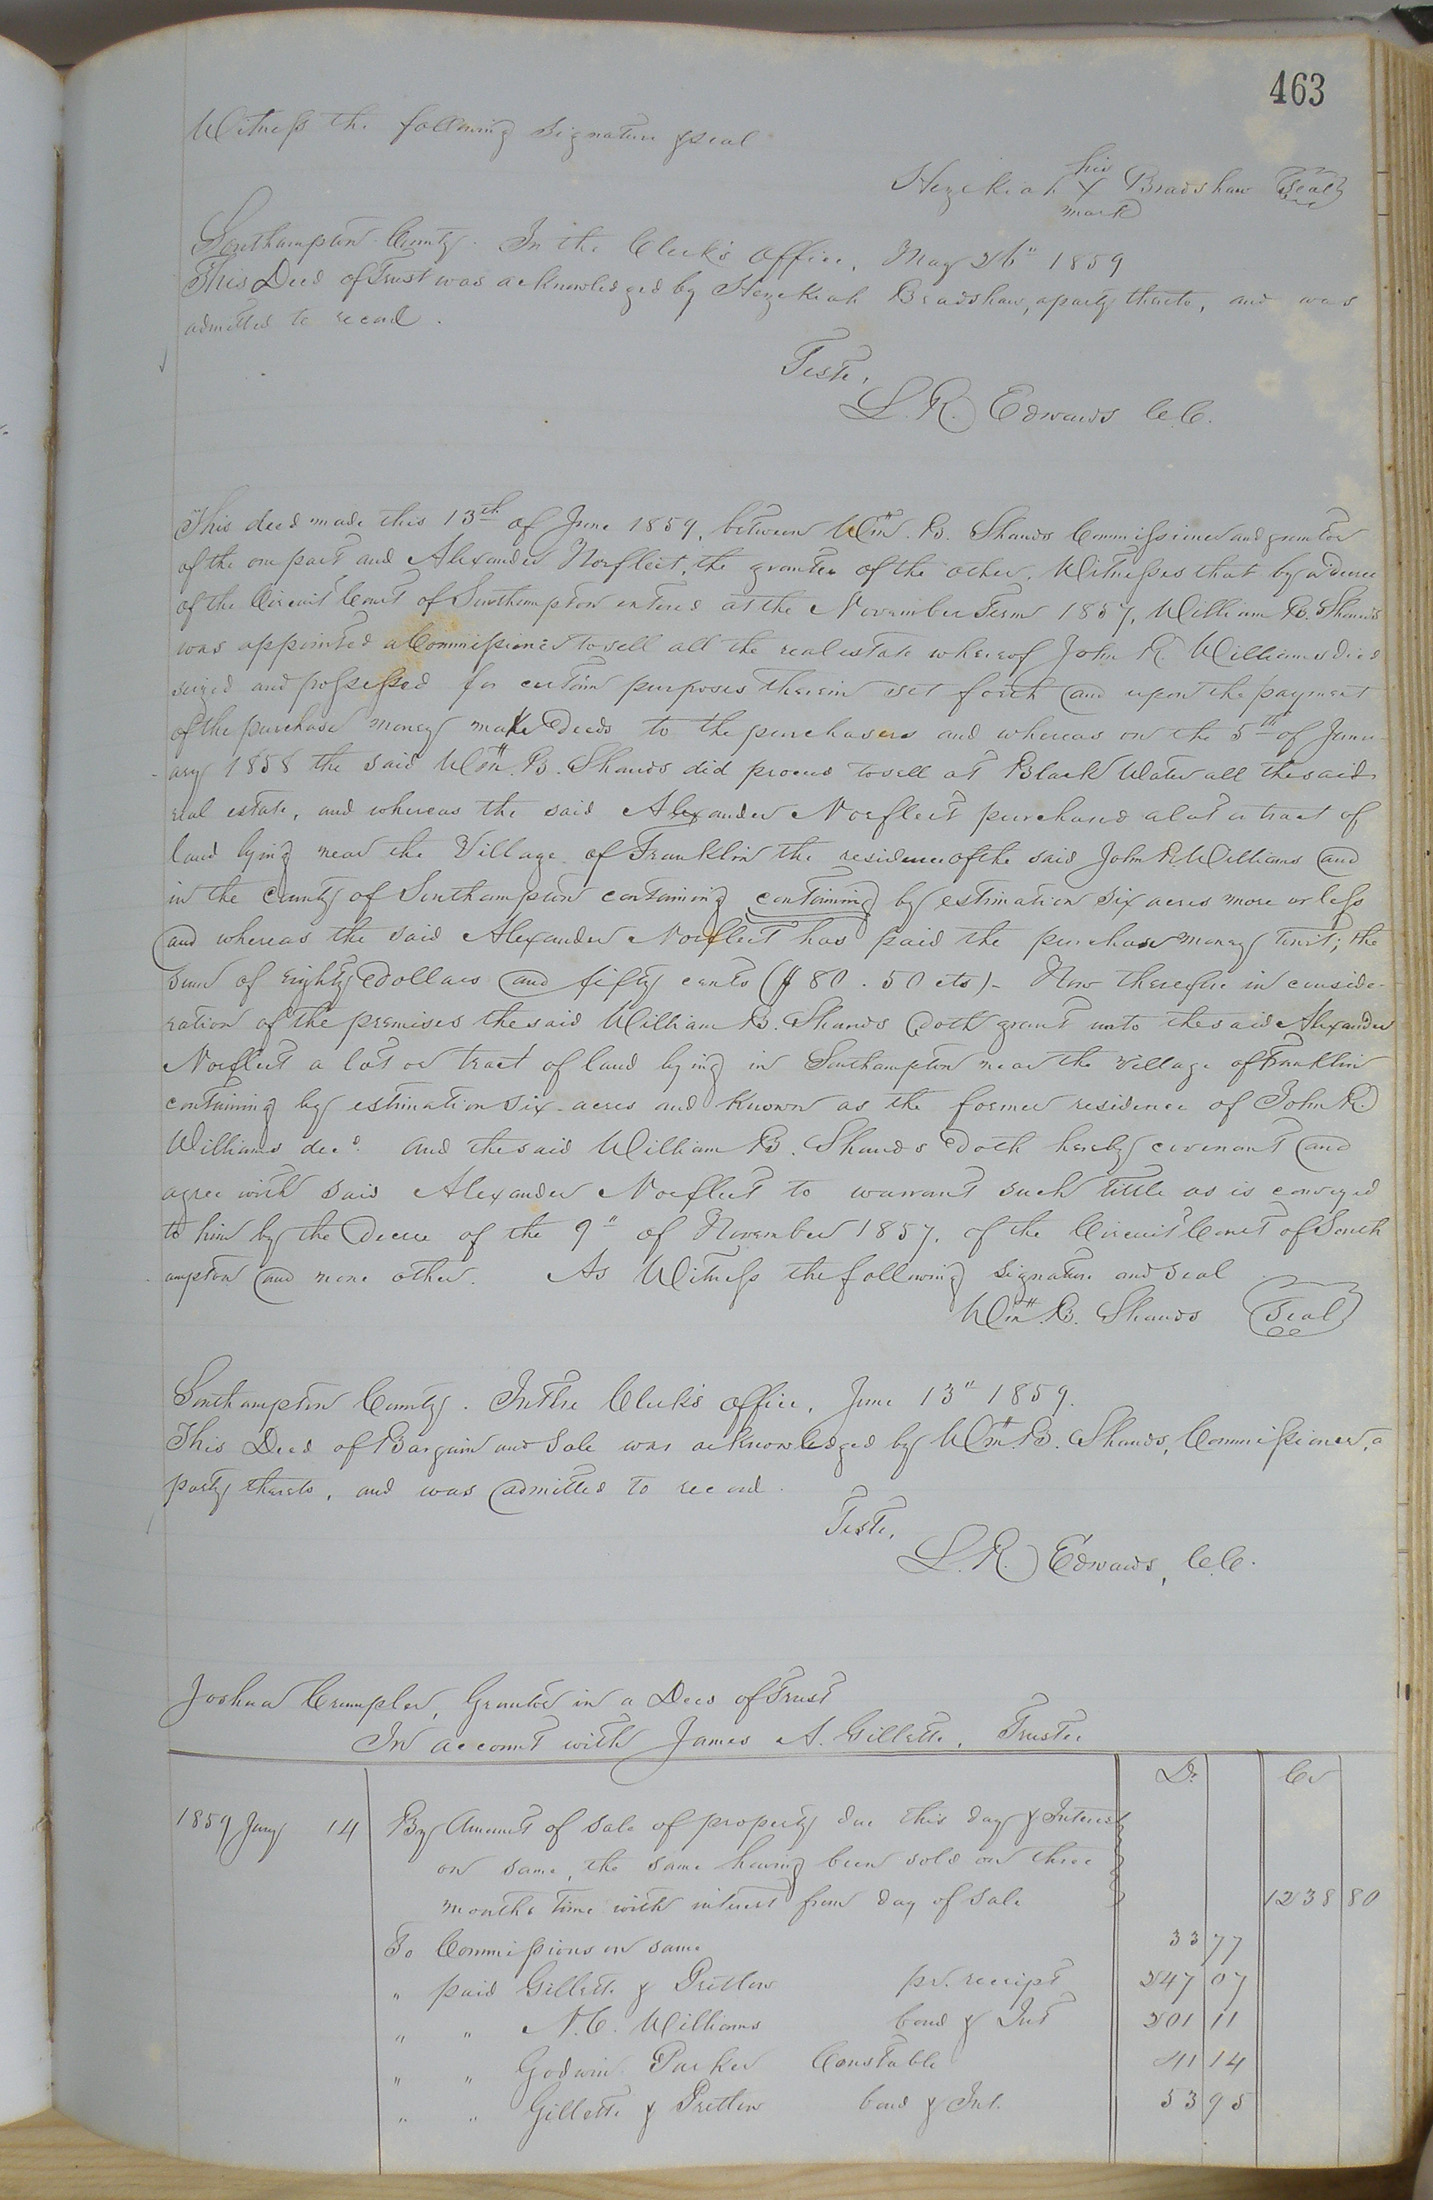 463
Witness the following signature & seal
his
Hezekiah X Bradshaw Seal
mark
Southampton County. In the Clerk's Office, May 26" 1859
This Deed of Trust was acknowledged by Hezekiah Bradshaw, a party thereto, and was
admitted to record.
Teste,
L. R. Edwards C.C.
This deed made this 13th of June 1859, between Wm. B. Shands Commissioner and grantor
of the one part and Alexander Norfleet, the grantee of the other. Witnesses that by a decree
of the Circuit Court of Southampton entered at the November Term 1857, William B. Shands
was appointed a Commissioner to sell all the real estate whereof John R. Williams died
seized and possessed for certain purposes therein set forth and upon the payment
of the purchase money make Deeds to the purchasers and whereas on the 5th of Janu-
ary 1858 the said Wm. B. Shands did proceed to sell at Black Water all the said
real estate, and whereas the said Alexander Norfleet purchased a lot or tract of
land lying near the Village of Franklin the residence of the said John R. Williams and
in the County of Southampton containing containing by estimation six acres more or less
and whereas the said Alexander Norfleet has paid the purchase money towit; the
sum of Eighty Dollars and fifty cents ($80.50 cts)- Now therefore in conside-
ration of the premises the said William B. Shands doth grant unto the said Alexander
Norfleet a lot or tract of land lying in Southampton near the village of Franklin
containing by estimation six-acres and known as the former residence of John R.
Williams decd. And the said William B. Shands doth hereby covenant and
agree with said Alexander Norfleet to warrant such tittle as is conveyed
to him by the Decree of the 9" of November 1857, of the Circuit Court of South
ampton and none other. As Witness the following signature and seal
Wm. B. Shands Seal
Southampton County. In the Clerk's office, June 13" 1859.
This Deed of Bargain and Sale was acknowledged by Wm. B. Shands, Commissioner, a
party thereto, and was admitted to record.
Teste,
L. R. Edwards, C.C.
Joshua Crumpler, Grantor in a Deed of Trust
In account with James A. Gillette, Trustee
Dr Cr
1859 Jany 14 By Amount of sale of property due this day & Interest
on same, the same having been sold on three
months time with interest from day of sale 1238 80
To Commissions on same 33 77
" paid Gillette & Pretlow pr. receipt 247 07
" " N. C. Williams bond & Int 201 11
" " Godwin Parker Constable 41 14
" " Gillette & Pretlow bond & Int. 53 95